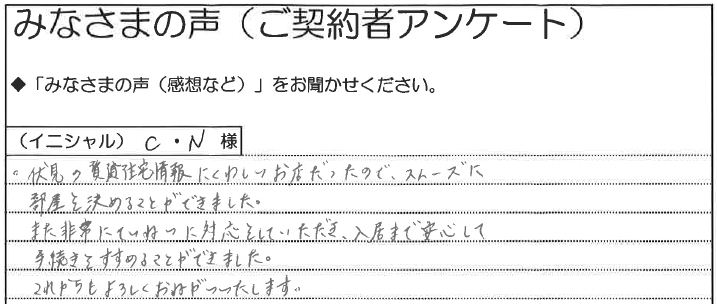 みなさまの声（ご契約者アンケート）
◆「みなさまの声（感想など）」をお聞かせください。
（イニシャル） C・N 様
。伏見の賃貸住宅情報にくわしいお店だったので、スムーズに
部屋を決めることができました。
また非常にていねいに対応をしていただき、入居まで安心して
手続きをすすめることができました。
これからもよろしくおねがいいたします。